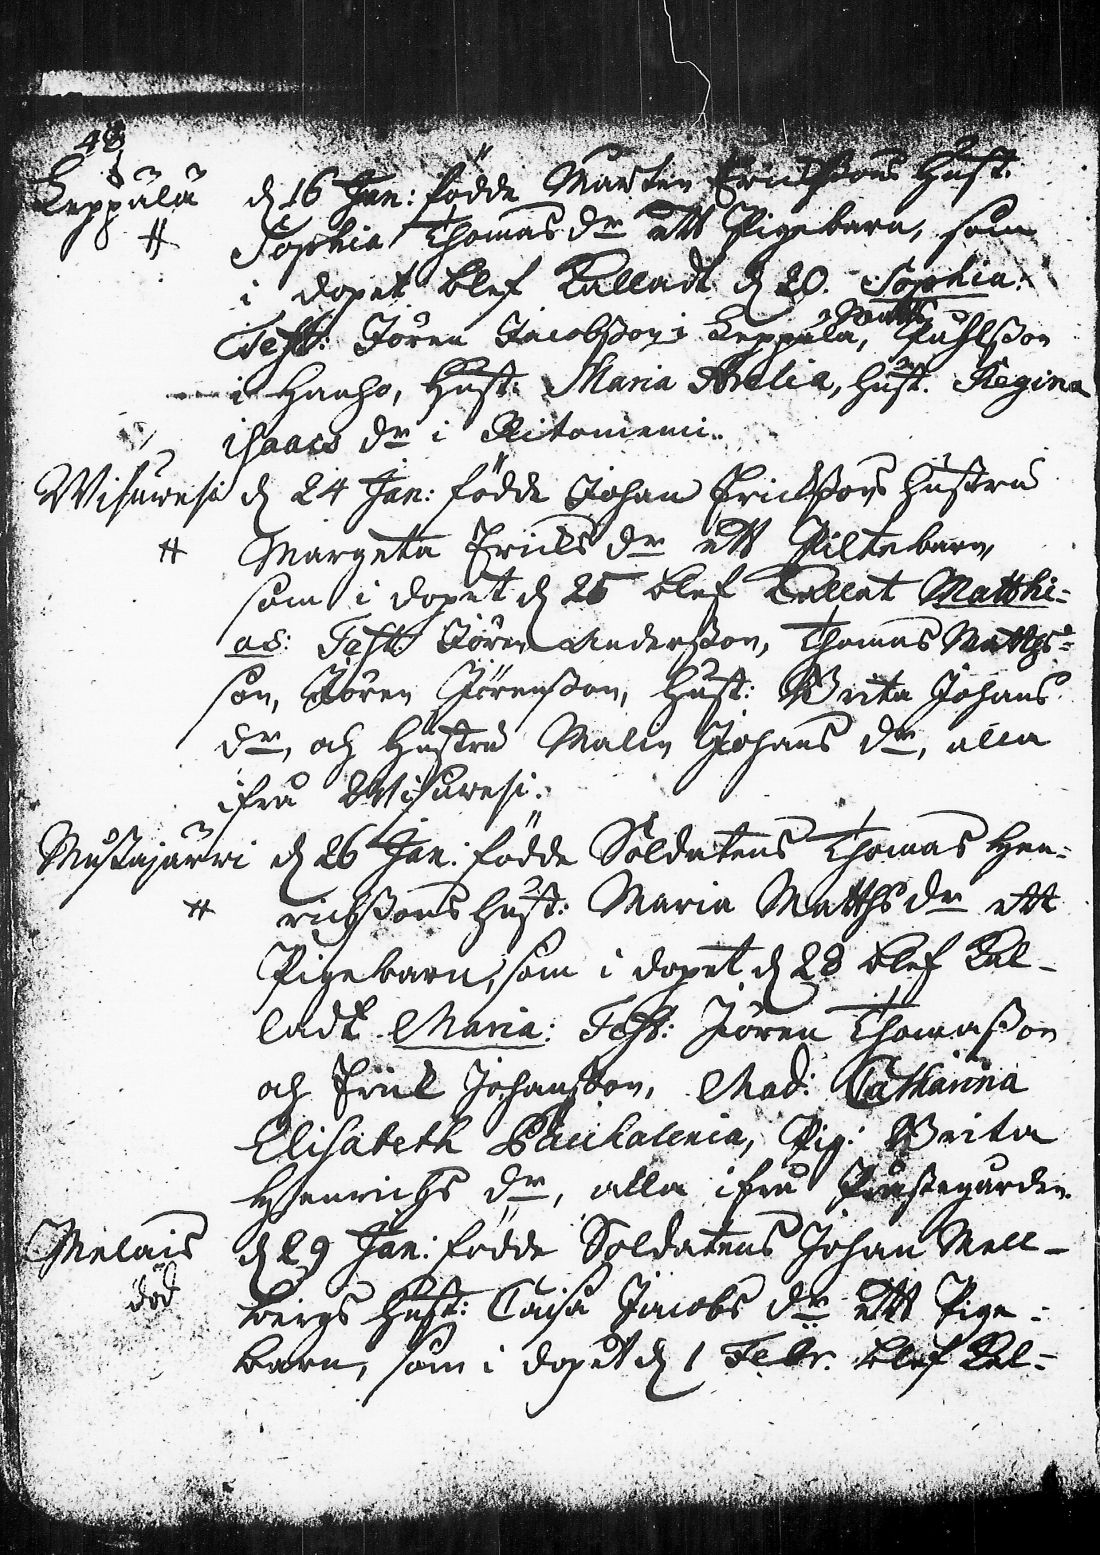 48
Leppälä d 16 Jan: födde Mårten Erichssons Hust:
# Sophia Thomas Dr ett Pigebarn, som
i dopet blef Kalladt d 20. Sophia:
Test: Jören Jacobsson i Leppälä, Matts Påhlsson
i Hanho, Hust: Maria Arelia, hust. Regina
Isaacs Dr i Ritoniemi.
Wisuwesi d 24 Jan: födde Johan Erichssons hustru
# Margeta Erichs Dr ett Piltebarn,
som i dopet d 25 blef Kallat Matthi-
as: Test: Jören Andersson, Thomas Matths-
son, Jören Jörensson, Hust: Brita Johans
Dr, och hustru Malin Johans Dr, alla
ifrå Wisuwesi.
Mustajärwi d 26 Jan: födde Soldatens Thomas Hen-
# richssons hust: Maria Matths Dr ett
Pigebarn, som i dopet d 28 blef Kal-
ladt Maria: Test: Jören Thomasson
och Erich Johansson, Mad: Catharina
Elisabeth Pacchalenia, Pig: Brita
Henrichs Dr, alla ifrå Prästegården.
Melais d 29 Jan: födde Soldatens Johan Mell-
död bergs hust: Caisa Jacobs Dr ett Pige-
barn, som i dopet d 1 Febr. blef Kal-